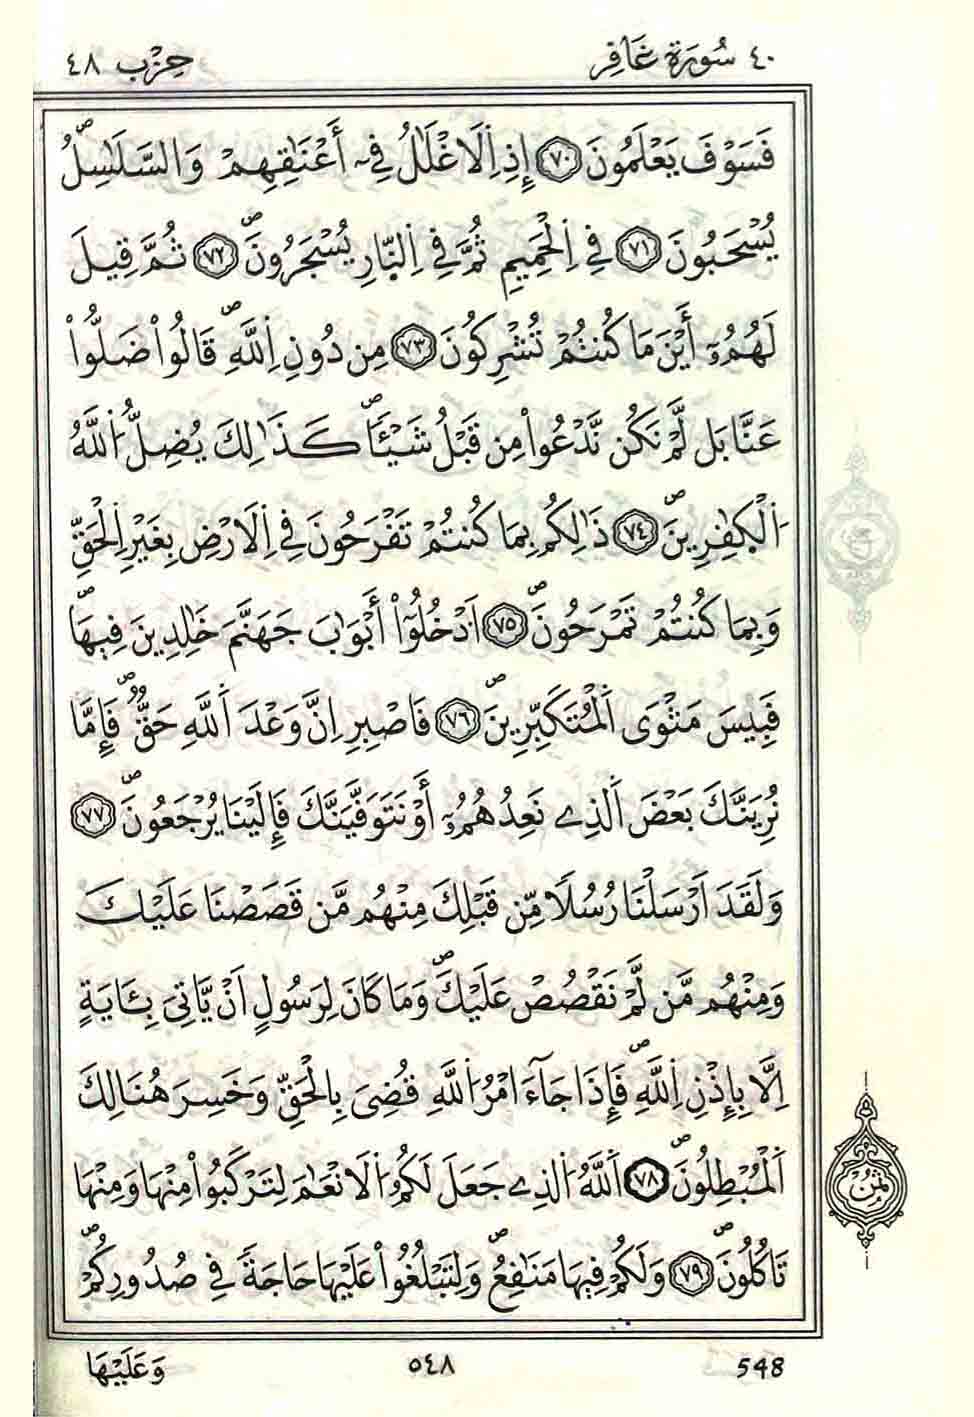 ٤٠ سُورَةُ غَافِرٍ
حِزْب ٤٨
فَسَوْفَ يَعْلَمُونَ ٧٠ إِذِ اِ۬لَاغْلَٰلُ فِےٓ أَعْنَٰقِهِمْ وَالسَّلَٰسِلُۖ
يُسْحَبُونَ ٧١ فِے اِ۬لْحَمِيمِ ثُمَّ فِے اِ۬لنّ۪ارِ يُسْجَرُونَۖ ٧٢ ثُمَّ قِيلَ
لَهُمُۥٓ أَيْنَ مَا كُنتُمْ تُشْرِكُونَ ٧٣ مِن دُونِ اِ۬للَّهِۖ قَالُواْ ضَلُّواْ
عَنَّا بَل لَّمْ نَكُن نَّدْعُواْ مِن قَبْلُ شَيْـٔاٗۖ كَذَٰلِكَ يُضِلُّ اُ۬للَّهُ
اُ۬لْكٰ۪فِرِينَۖ ٧٤ ذَٰلِكُم بِمَا كُنتُمْ تَفْرَحُونَ فِے اِ۬لَارْضِ بِغَيْرِ اِ۬لْحَقِّ
وَبِمَا كُنتُمْ تَمْرَحُونَۖ ٧٥ اَ۟دْخُلُوٓاْ أَبْوَٰبَ جَهَنَّمَ خَٰلِدِينَ فِيهَاۖ
فَبِيسَ مَثْوَى اَ۬لْمُتَكَبِّرِينَۖ ٧٦ فَاصْبِرِ اِنَّ وَعْدَ اَ۬للَّهِ حَقّٞۖ فَإِمَّا
نُرِيَنَّكَ بَعْضَ اَ۬لذِے نَعِدُهُمُۥٓ أَوْ نَتَوَفَّيَنَّكَ فَإِلَيْنَا يُرْجَعُونَۖ ٧٧
وَلَقَدَ اَرْسَلْنَا رُسُلاٗ مِّن قَبْلِكَ مِنْهُم مَّن قَصَصْنَا عَلَيْكَ
وَمِنْهُم مَّن لَّمْ نَقْصُصْ عَلَيْكَۖ وَمَا كَانَ لِرَسُولٍ اَنْ يَّاتِيَ بِـَٔايَةٍ
اِلَّا بِإِذْنِ اِ۬للَّهِۖ فَإِذَا جَآءَ امْرُ اُ۬للَّهِ قُضِيَ بِالْحَقِّ وَخَسِرَ هُنَالِكَ
اَ۬لْمُبْطِلُونَۖ ٧٨ اَ۬للَّهُ اُ۬لذِے جَعَلَ لَكُمُ اُ۬لَانْعَٰمَ لِتَرْكَبُواْ مِنْهَا وَمِنْهَا
ثُمُن
تَاكُلُونَۖ ٧٩ وَلَكُمْ فِيهَا مَنَٰفِعُۖ وَلِتَبْلُغُواْ عَلَيْهَا حَاجَةٗ فِے صُدُورِكُمْۖ
وَعَلَيْهَا
٥٤٨
548